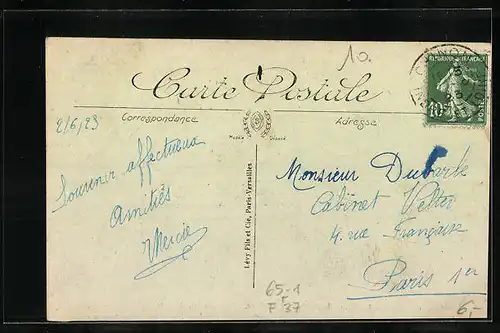 10.
Carte Postale
Correspondance
Adresse
RÉPUBLIQUE FRANÇAISE
10c
POSTES
2/6/23
Souvenir affectueux
Amitiés
Modèle Déposé
Lévy Fils et Cie, Paris-Versailles
Monsieur
Cabinet
4. rue Française
Paris 1er
65-1
F 37
6,-